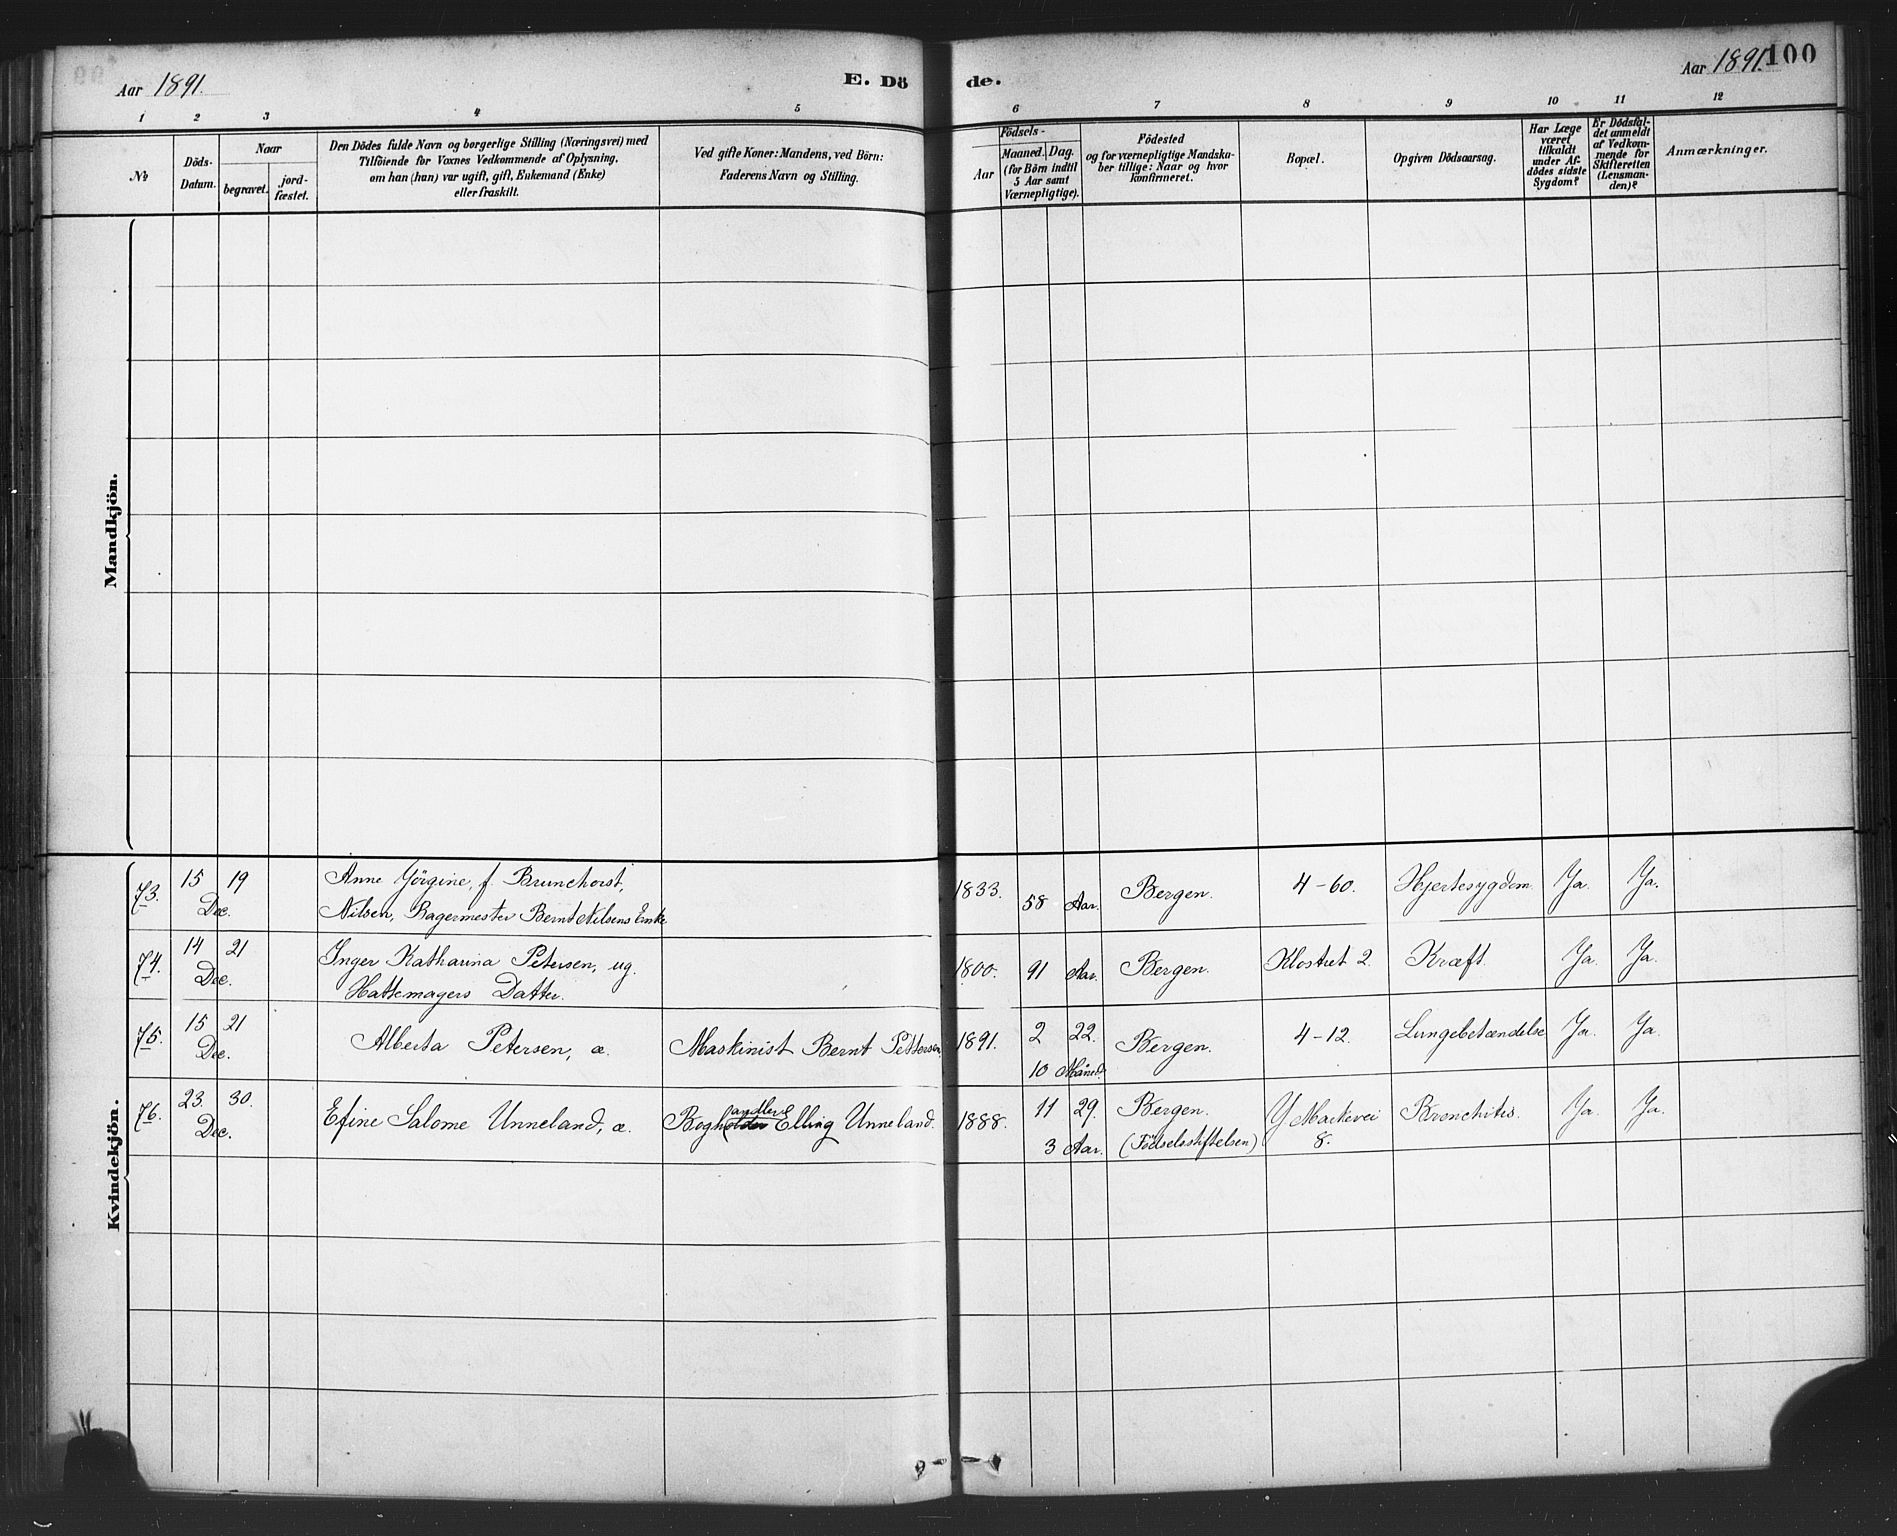 Aar 1891.
E. Dö
de.
Aar 1891.
100
1 2 3 4 5 6 7 8 9 10 11 12
No
Döds-
Datum.
Naar
begravet.
jord-
fæstet.
Den Dödes fulde Navn og borgerlige Stilling (Næringsvei) med
Tilföiende for Voxnes Vedkommende af Oplysning,
om han (hun) var ugift, gift, Enkemand (Enke)
eller fraskilt.
Ved gifte Koner: Mandens, ved Börn:
Faderens Navn og Stilling.
Födsels-
Aar
Maaned. Dag.
(for Börn indtil
5 Aar samt
Værnepligtige).
Födested
og for værnepligtige Mandska-
ber tillige: Naar og hvor
konfirmeret.
Bopæl.
Opgiven Dödsaarsag.
Har Læge
været
tilkaldt
under Af-
dödes sidste
Sygdom?
Er Dödsfal-
det anmeldt
af Vedkom-
mende for
Skifteretten
(Lensman-
den)?
Anmærkninger.
Mandkjön.
Kvindekjön.
73. 15 Dec. 19
Anne Jörgine, f. Brunchorst,
Nilsen, Bagermester Bernt Nilsens Enke
1833. 58 Aar. Bergen. 4-60. Hjertesygdom Ja. Ja.
74. 14 Dec. 21
Inger Katharina Petersen, ug.
Hattemagers Datter.
1800. 91 Aar. Bergen. Klostret 2. Kræft. Ja. Ja.
75. 15 Dec. 21
Alberta Petersen, æ. Maskinist Bernt Pettersen,
1891. 2 22. Bergen. 4-12. Lungebetændelse Ja. Ja.
10 Maaned.
76. 23. Dec. 30.
Efine Salome Unneland, æ. Boghandler Elling Unneland.
1888. 11 29. Bergen. Y Markevei Bronchitis. Ja. Ja.
3 Aar. (Födselsstiftelsen) 8.